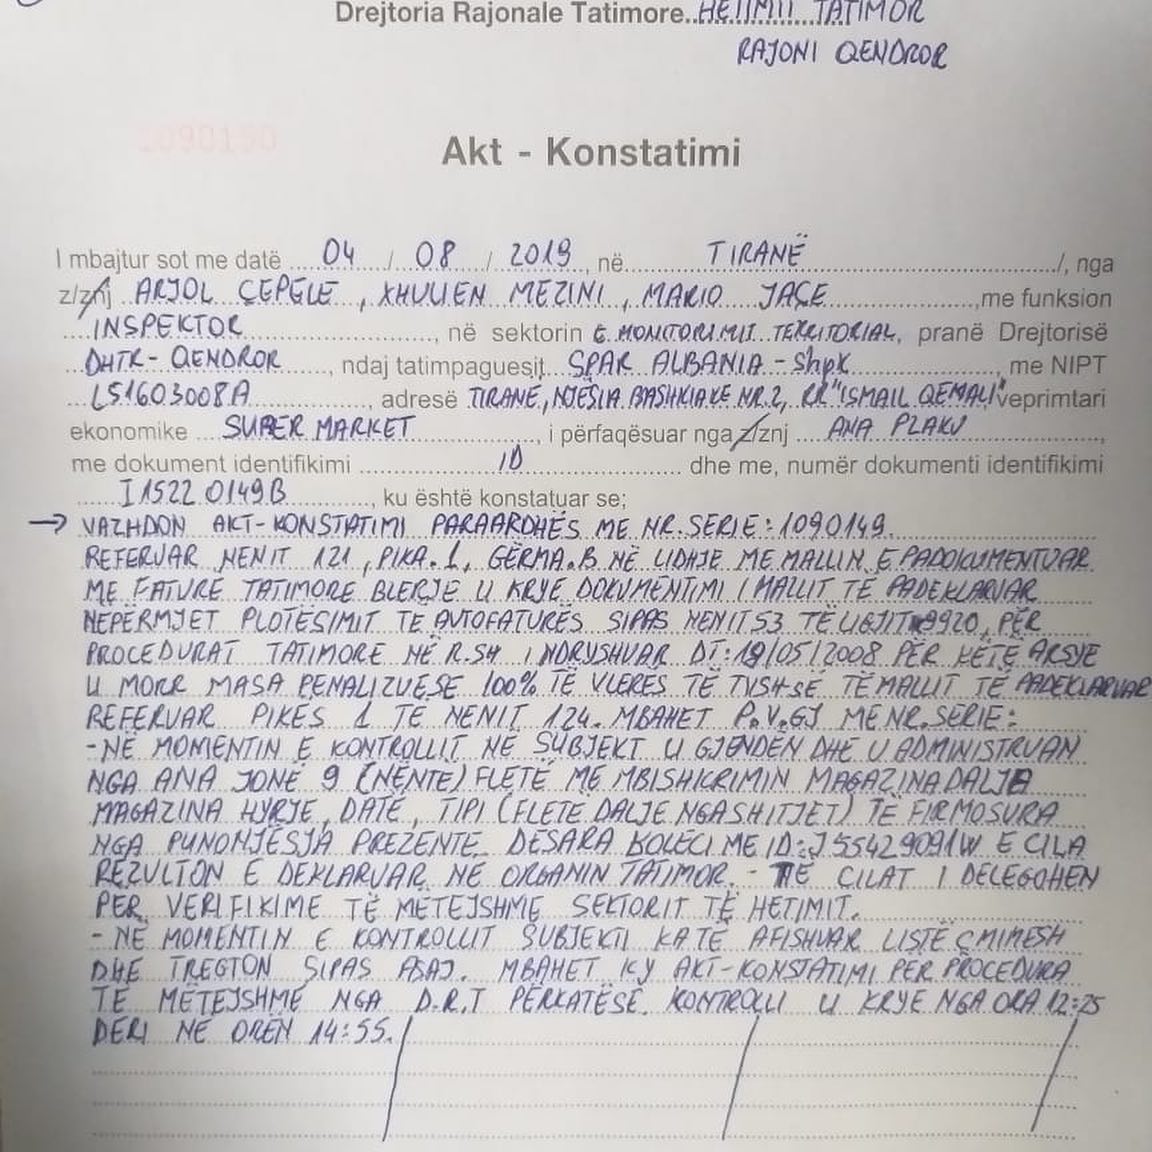 Drejtoria Rajonale Tatimore..HETIMIT TATIMOR
RAJONI QENDROR
1090150
Akt - Konstatimi
I mbajtur sot me datë ....04..../...08.../..2019.., në..........TIRANË............../, nga
z/znj ARJOL ÇEPELE, XHULIEN MEZINI, MARIO JAÇE..............,me funksion
....INSPEKTOR......................, në sektorin E MONITORIMIT TERRITORIAL, pranë Drejtorisë
..DHTR-QENDROR......, ndaj tatimpaguesit...SPAR ALBANIA - Shpk..............., me NIPT
...L51603008A................, adresë TIRANE, NJËSIA BASHKIAKE NR.2, RR "ISMAIL QEMALI" veprimtari
ekonomike ....SUPER MARKET................, i përfaqësuar nga z/znj ....ANA PLAKU..............,
me dokument identifikimi ..................ID..................... dhe me, numër dokumenti identifikimi
......I15220149B............, ku është konstatuar se;
→ VAZHDON AKT-KONSTATIMI PARAARDHËS ME NR.SERIE: 1090149.
REFERUAR NENIT 121, PIKA.1, GËRMA.B NË LIDHJE ME MALLIN E PADOKUMENTUAR
ME FATURË TATIMORE BLERJE U KRYE DOKUMENTIMI I MALLIT TË PADEKLARUAR
NEPËRMJET PLOTËSIMIT TE AUTOFATURËS SIPAS NENIT 53 TË LIGJIT 9920, PËR
PROCEDURAT TATIMORE NË R.SH I NDRYSHUAR DT: 19/05/2008 PËR KËTË ARSYE
U MORR MASA PENALIZUESE 100% TË VLERËS TË TVSH-SË TË MALLIT TË PADEKLARUAR
REFERUAR PIKËS 1 TË NENIT 124. MBAHET P.V.GJ ME NR.SERIE:
-NË MOMENTIN E KONTROLLIT NË SUBJEKT U GJENDËN DHE U ADMINISTRUAN
NGA ANA JONË 9 (NËNTE) FLETË ME MBISHKRIMIN MAGAZINA DALJA
MAGAZINA HYRJE, DATË, TIPI (FLETE DALJE NGA SHITJET) TË FIRMOSURA
NGA PUNONJËSJA PREZENTE DESARA KOLECI ME ID: J55429091W E CILA
REZULTON E DEKLARUAR NË ORGANIN TATIMOR. - TË CILAT I DELEGOHEN
PËR VERIFIKIME TË MËTEJSHME SEKTORIT TË HETIMIT.
- NË MOMENTIN E KONTROLLIT SUBJEKTI KA TË AFISHUAR LISTË ÇMIMESH
DHE TREGTON SIPAS ASAJ. MBAHET KY AKT-KONSTATIMI PËR PROCEDURA
TË MËTEJSHME NGA D.R.T PËRKATËSE. KONTROLLI U KRYE NGA ORA 12:25
DERI NË ORËN 14:55.